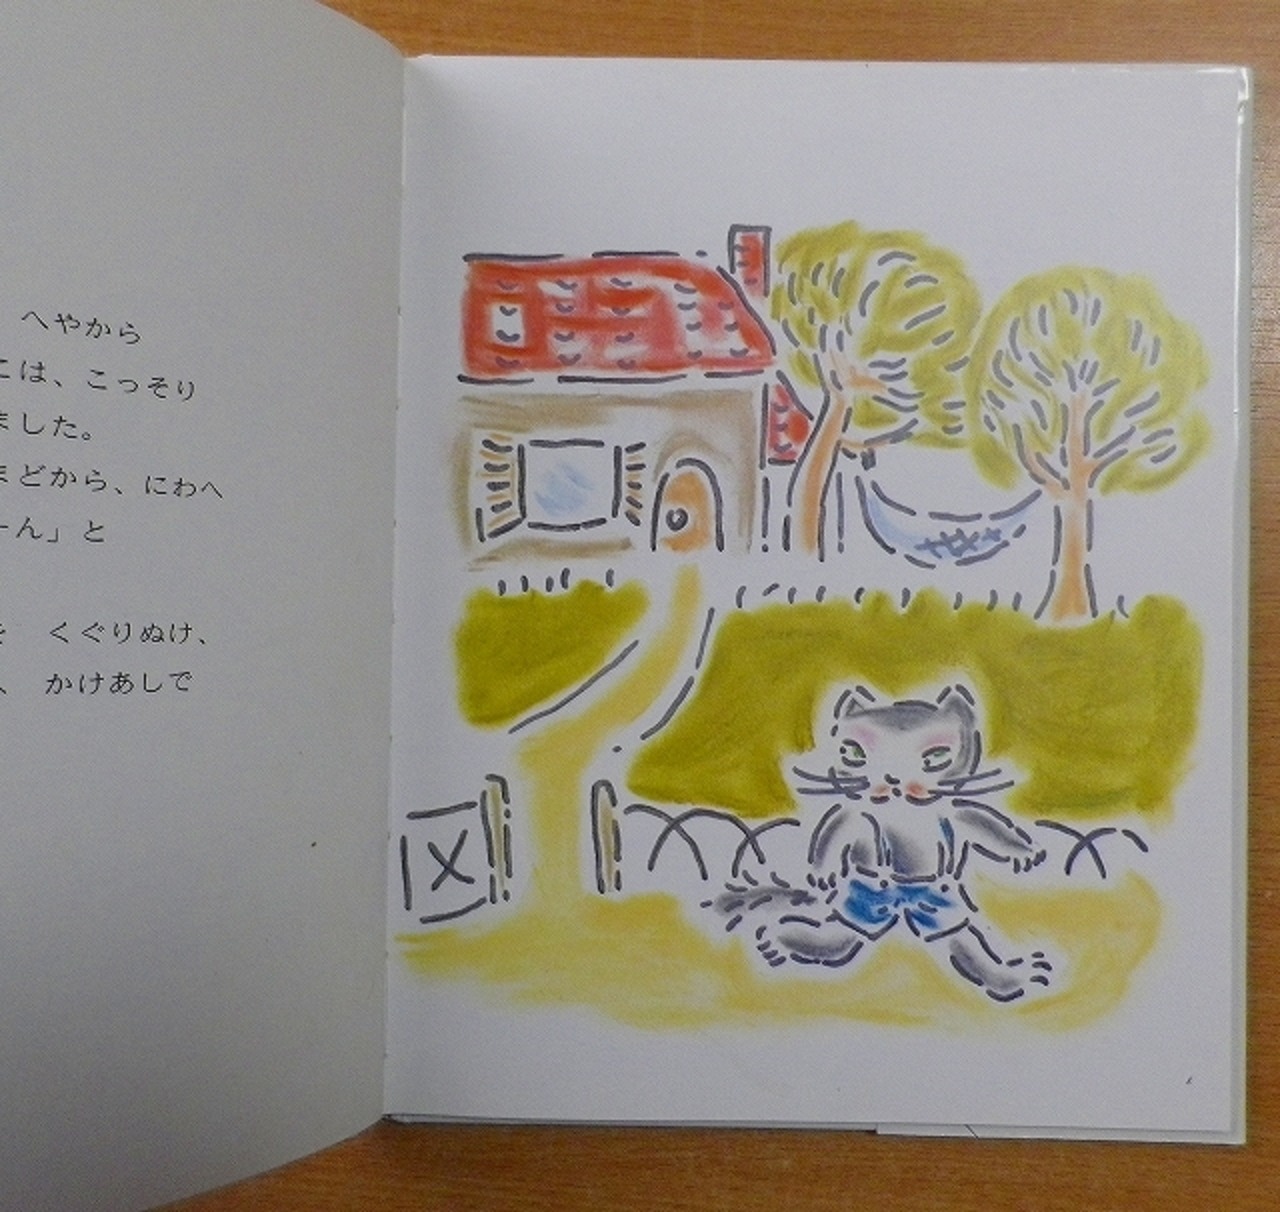 へやから
こは、こっそり
ました。
まどから、にわへ
ーん」と
を　くぐりぬけ、
、　かけあしで